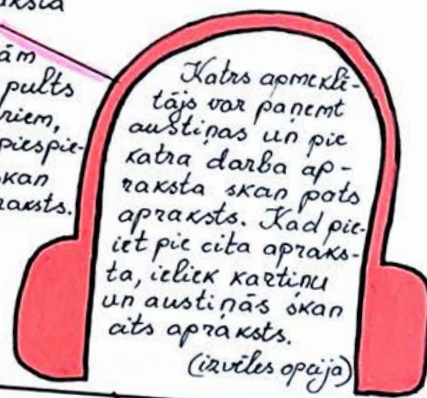 aksta
ām
pults
riem,
piespie-
skan
raksts.
Katrs apmeklē-
tājs var paņemt
austiņas un pie
katra darba ap-
raksta skan pats
apraksts. Kad pie-
iet pie cita apraks-
ta, ieliek kartiņu
un austiņās skan
cits apraksts.
(izvēles opcija)